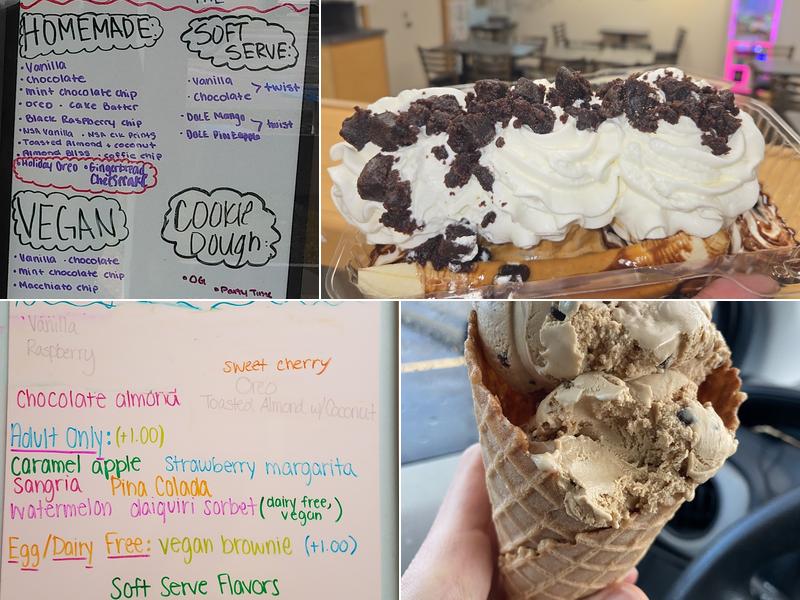 HOMEMADE:
• Vanilla
• chocolate
• mint chocolate chip
• oreo • cake Batter
• Black Raspberry chip
• NSA Vanilla • NSA
• Toasted Almond + coconut
• Almond Bliss • coffee chip
• Holiday Oreo • Gingerbread Cheesecake
SOFT SERVE:
• Vanilla
• Chocolate
> twist
• DOLE Mango
• DOLE Pineapple
> twist
VEGAN
• Vanilla • chocolate
• mint chocolate chip
• Macchiato chip
COOKIE DOUGH:
• OG • Party Time
Vanilla
Raspberry
sweet cherry
Oreo
Chocolate almond
Toasted Almond w/Coconut
Adult Only: (+1.00)
caramel apple strawberry margarita
Sangria Pina Colada
watermelon daiquiri sorbet (dairy free, vegan)
Egg/Dairy Free: vegan brownie (+1.00)
Soft Serve Flavors